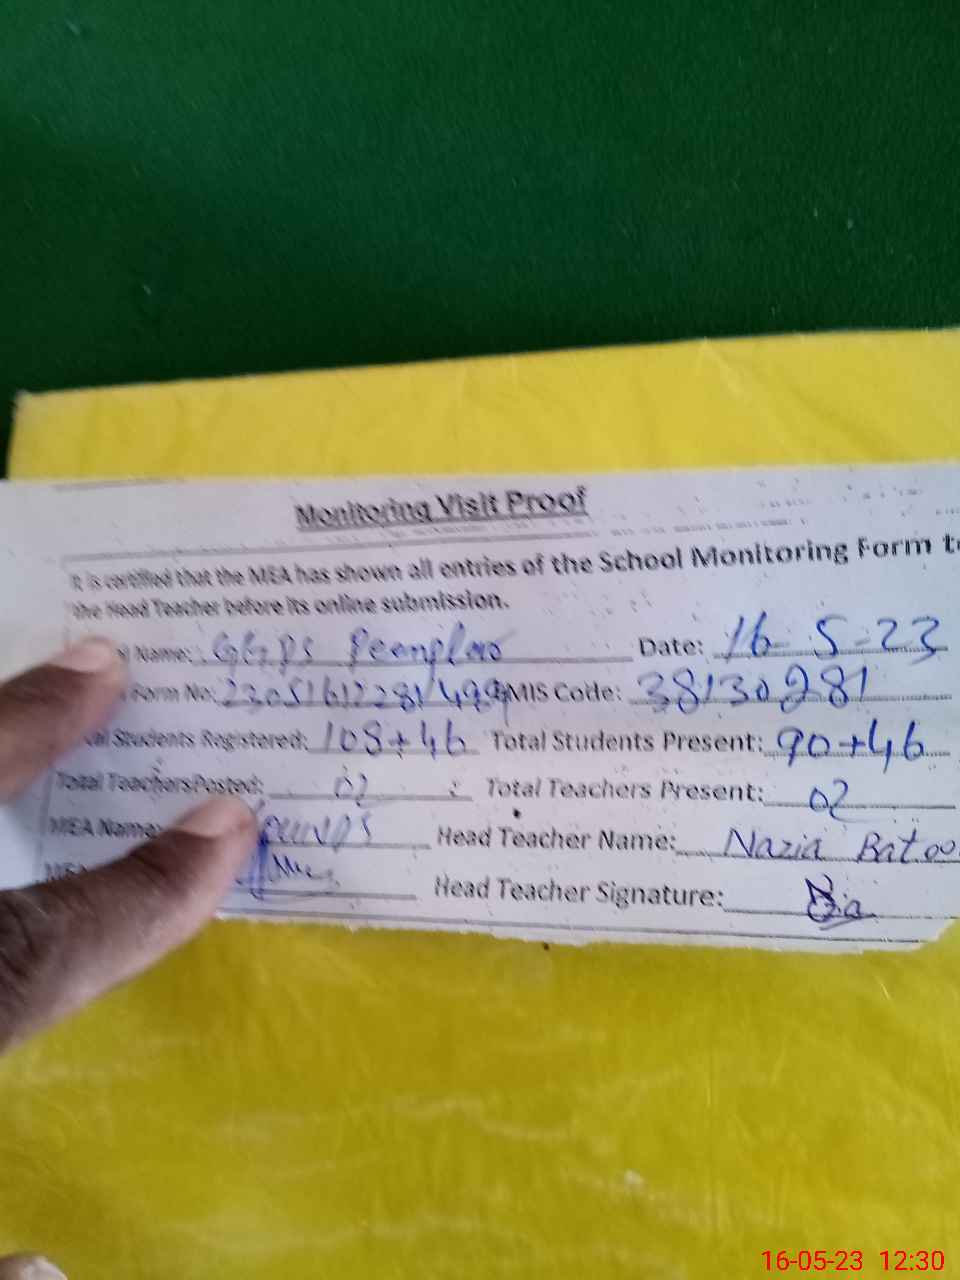 Monitoring Visit Proof
It is certified that the MEA has shown all entries of the School Monitoring Form t
the Head Teacher before its online submission.
Name: GGPS Date: 16-5-23
Form No: MIS Code: 38130281
Students Registered: 108+46 Total Students Present: 90+46
Total TeachersPosted: 02 Total Teachers Present: 02
MEA Name: Head Teacher Name: Nazia Batoo
Head Teacher Signature:
16-05-23 12:30